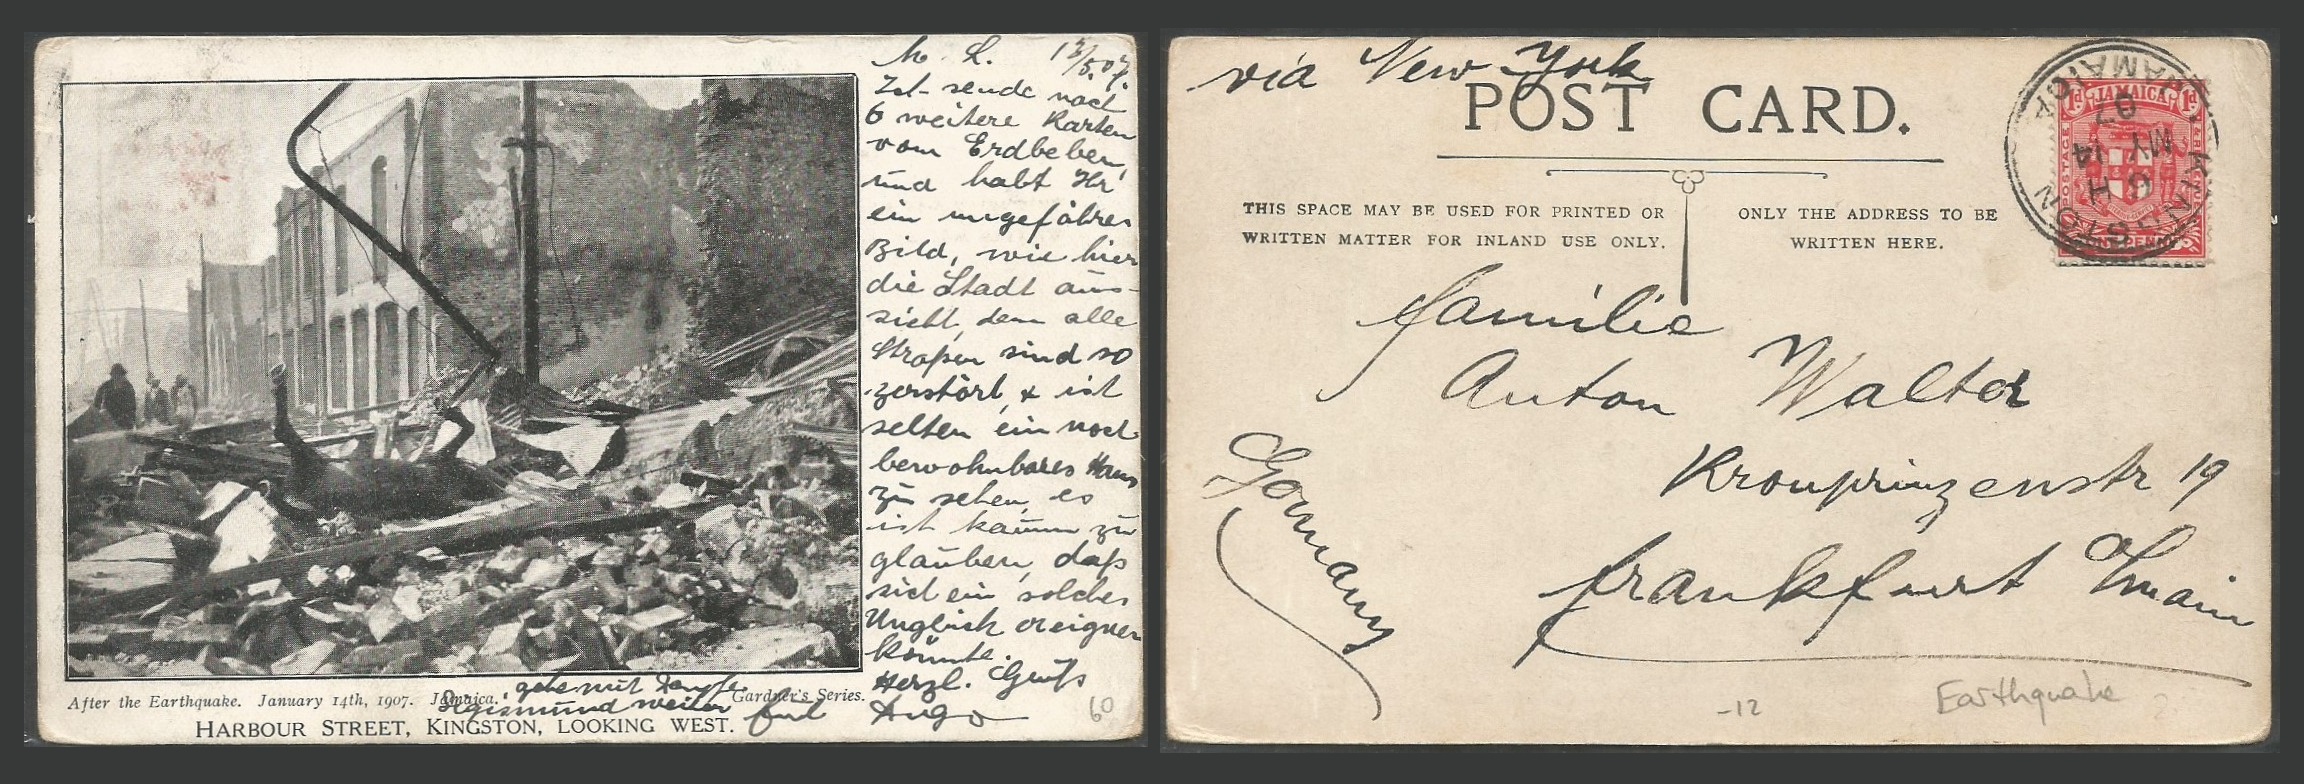 M. L. 13/5.07.
Ich sende noch
6 weitere Karten
vom Erdbeben,
und habt Ihr
ein ungefähres
Bild, wie hier
die Stadt aus-
sieht, denn alle
Straßen sind so
zerstört, & ist
selten ein noch
bewohnbares Haus
zu sehen, es
ist kaum zu
glauben, daß
sich ein solches
Unglück ereignen
könnte.
Herzl. Gruß
Hugo
gehe mit Dampfer
Sigismund weiter
After the Earthquake. January 14th, 1907. Jamaica. Gardner's Series.
HARBOUR STREET, KINGSTON, LOOKING WEST.
60
via New-York
POST CARD.
THIS SPACE MAY BE USED FOR PRINTED OR
WRITTEN MATTER FOR INLAND USE ONLY.
ONLY THE ADDRESS TO BE
WRITTEN HERE.
1d JAMAICA 1d
POSTAGE & REVENUE
ONE PENNY
KINGSTON JAMAICA
MY 14
07
Familie
Anton Walter
Kronprinzenstr 19
Frankfurt a/main
Germany
-12
Earthquake